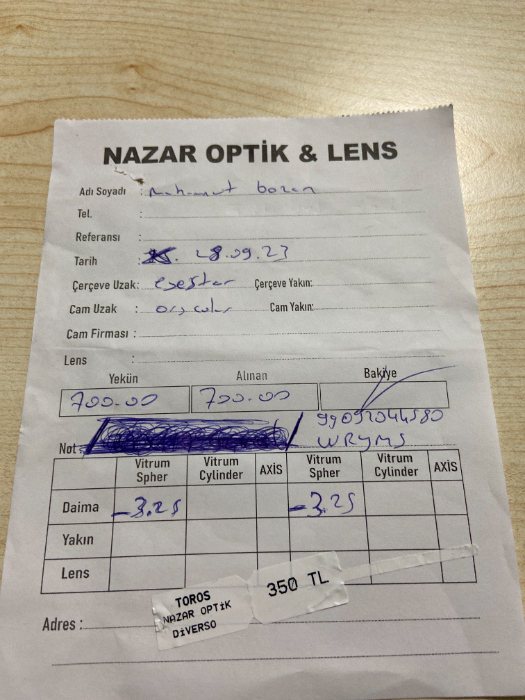 NAZAR OPTİK & LENS
Adı Soyadı : mahmut bozan
Tel. :
Referansı :
Tarih : 28.09.23
Çerçeve Uzak: Çerçeve Yakın:
Cam Uzak : Cam Yakın:
Cam Firması :
Lens :
Yekün Alınan Bakiye
700.00 700.00
99092044580
Not : WRYMS
Vitrum Spher Vitrum Cylinder AXİS Vitrum Spher Vitrum Cylinder AXİS
Daima -3.25 -3.25
Yakın
Lens
TOROS
NAZAR OPTİK 350 TL
DİVERSO
Adres :